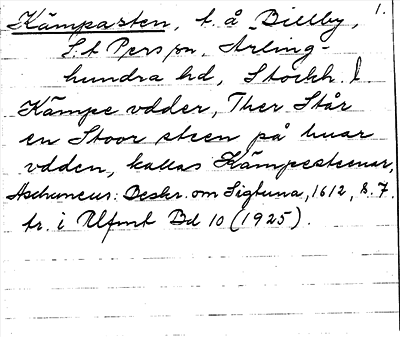 1.
Kämpasten, t. å Billby,
S:t Pers sn, Arling-
hundra hd, Stockh. l.
Kämpe vdder, Ther Står
en Stoor steen på huar
vdden, kallas Kämpesteenar,
Aschaneus: Beskr. om Sigtuna, 1612, s. 7.
tr. i Rlfmt Bd 10 (1925).